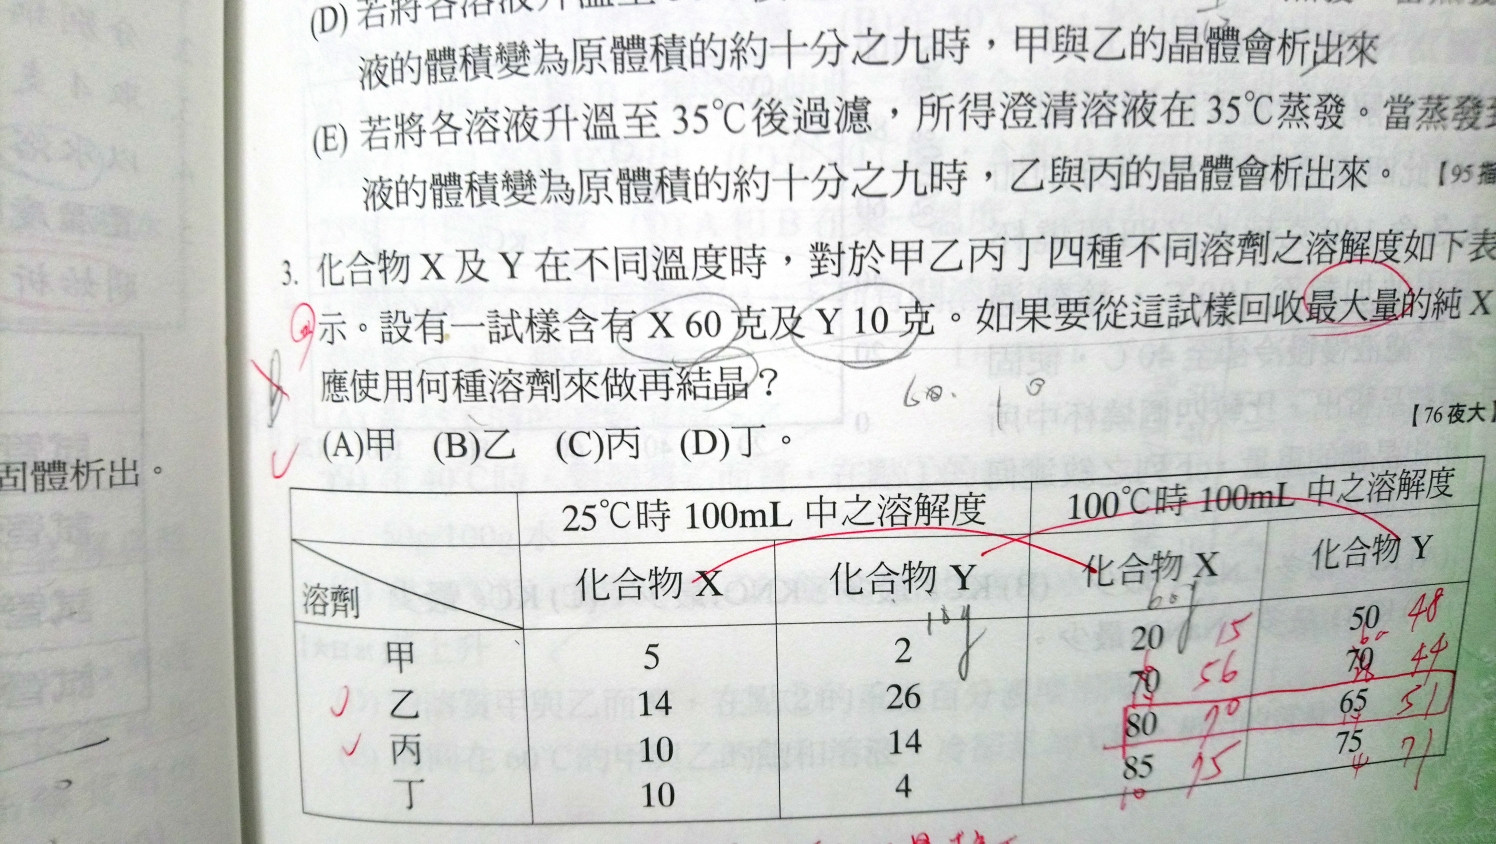 (D) 若將各溶液升溫至
液的體積變為原體積的約十分之九時，甲與乙的晶體會析出來
(E) 若將各溶液升溫至 35℃後過濾，所得澄清溶液在 35℃蒸發。當蒸發至
液的體積變為原體積的約十分之九時，乙與丙的晶體會析出來。 【95指
3. 化合物 X 及 Y 在不同溫度時，對於甲乙丙丁四種不同溶劑之溶解度如下表
示。設有一試樣含有 X 60 克及 Y 10 克。如果要從這試樣回收最大量的純 X
應使用何種溶劑來做再結晶？
60. 10
【76夜大】
(A)甲 (B)乙 (C)丙 (D)丁。
固體析出。
25℃時 100mL 中之溶解度 100℃時 100mL 中之溶解度
溶劑 化合物 X 化合物 Y 化合物 X 化合物 Y
10g 60g
甲 5 2 20 15 50 48
乙 14 26 70 56 70 44
丙 10 14 80 70 65 51
丁 10 4 85 75 75 71